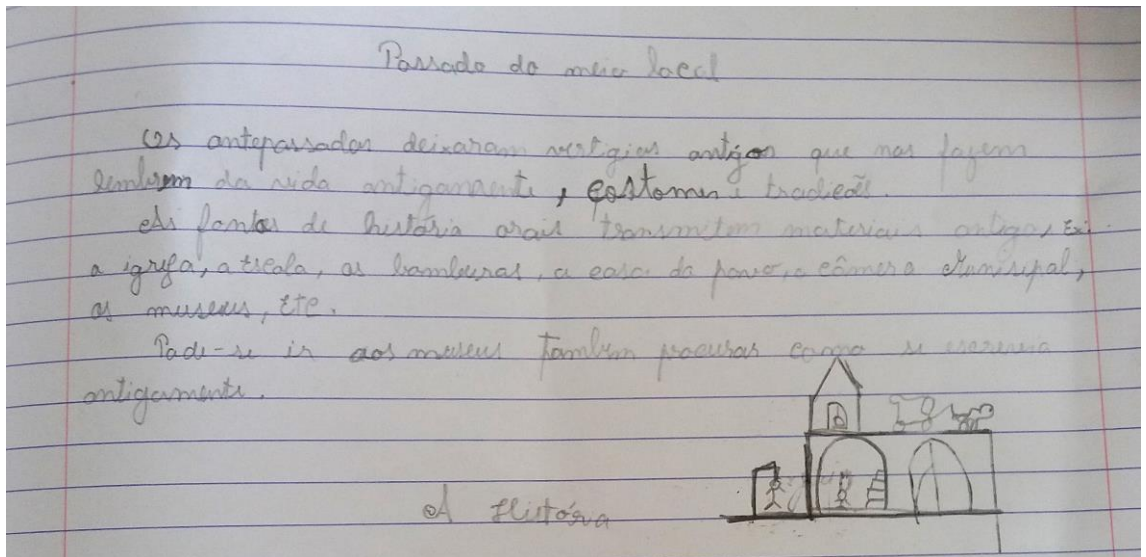 Passado do meio local
Os antepassados deixaram vestígios antigos que nos fazem
lembrem da vida antigamente, costomes e tradições.
As fontes de história orais transmitem materiais antigos, Ex:
a igreja, a escola, os bombeiros, a casa do povo, a câmera Munisipal,
os museus, etc.
Pode-se ir aos museus também procurar como se escrevia
antigamente.
A História